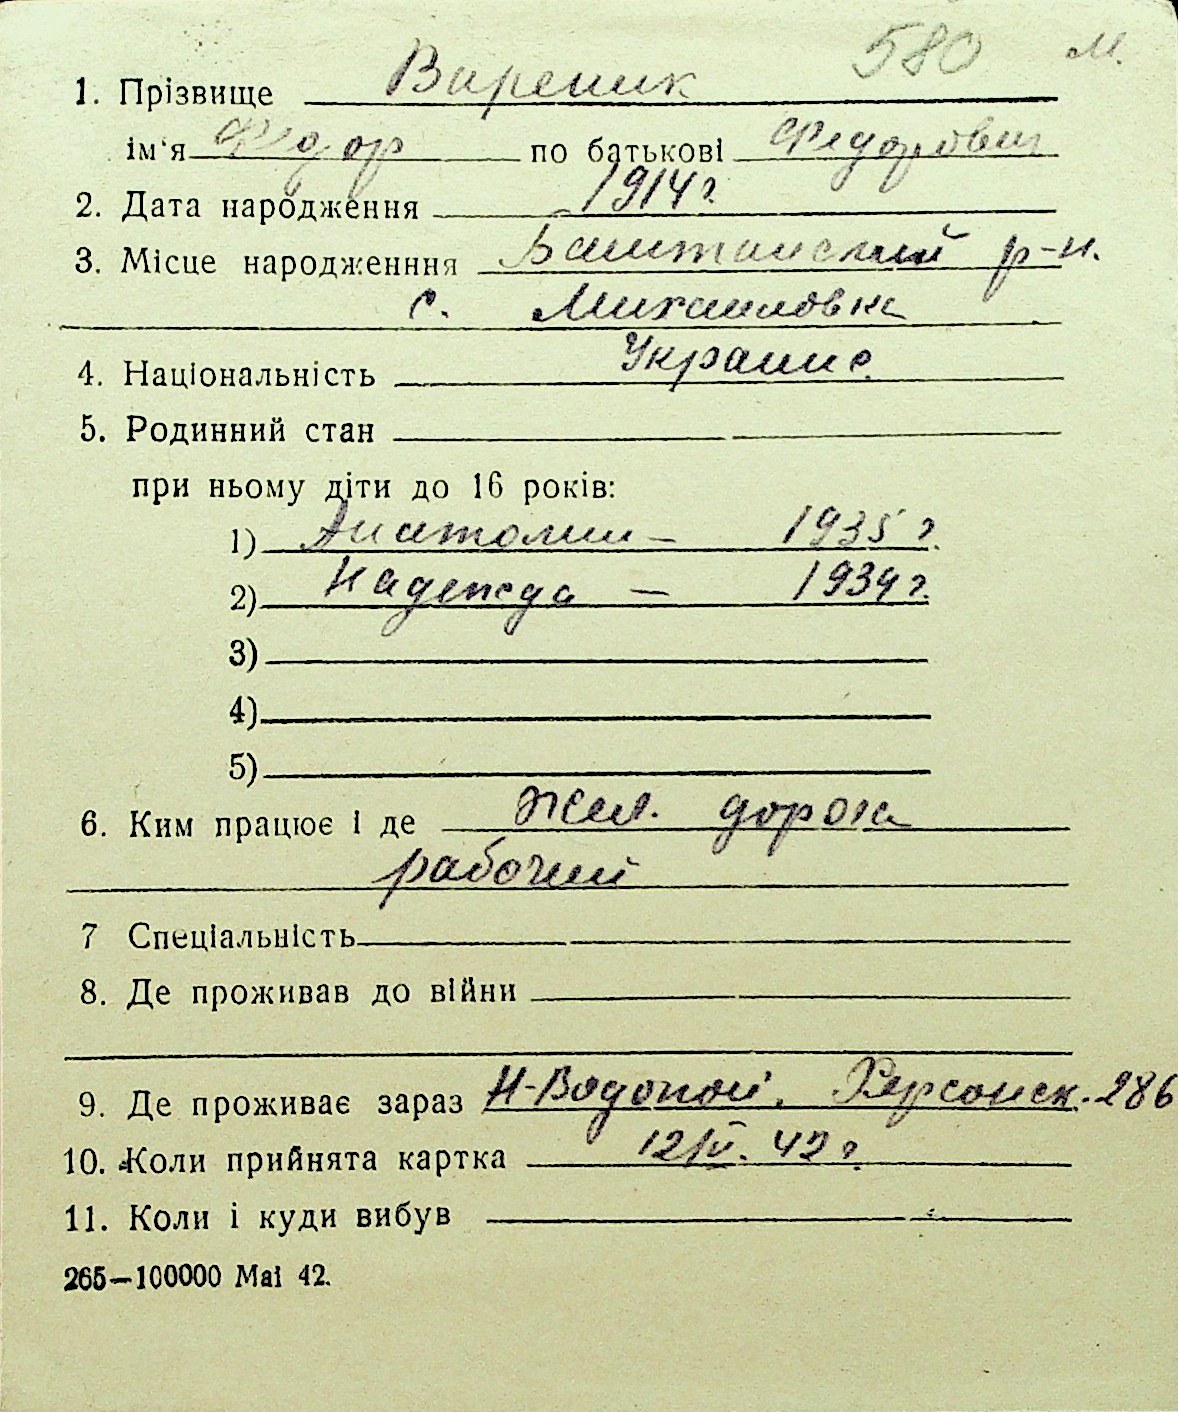 580 М.
1. Прізвище Вареник
ім'я Федор по батькові Федорович
2. Дата народження 1914 г.
3. Місце народженння Баштанский р-н.
с. Михайловка
4. Національність Украине.
5. Родинний стан
при ньому діти до 16 років:
1) Анатолий – 1935 г.
2) Надежда – 1939 г.
3)
4)
5)
6. Ким працює і де Жел. дорога
рабочий
7 Спеціальність
8. Де проживав до війни
9. Де проживає зараз Н-Водопой, Херсонск. 286
10. Коли прийнята картка 42 г.
11. Коли і куди вибув
265—100000 Маі 42.